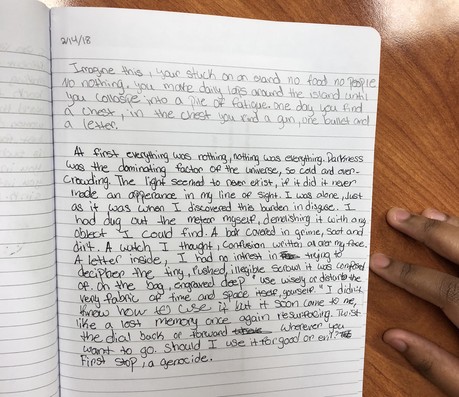 2/14/18
Imagine this, your stuck on an island no food no people
No nothing, you make daily laps around the island until
you collaspe into a pile of fatigue. one day you find
a chest, in the chest you find a gun, one bullet and
a letter.
At first everything was nothing, nothing was everything. Darkness
was the dominating factor of the universe, so cold and over-
crowding. The light seemed to never exist, if it did it never
made an apperance in my line of sight. I was alone, just
as it was when I discovered this burden in disguse. I
had dug out the meteor myself, demolishing it with any
object I could find. A box covered in grime, soot and
dirt. A watch I thought, confusion written all over my face.
A letter inside, I had no intrest in trying to
decipher the tiny, rushed, illegible scrowl it was composed
of. On the bag, engraved deep "use wisely or distorte the
very fabric of time and space itself, yourself." I didn't
know how to use it but it soon came to me,
like a lost memory once again resurfacing. Twist
the dial back or forward wherever you
want to go. Should I use it for good or evil?
First stop, a genocide.